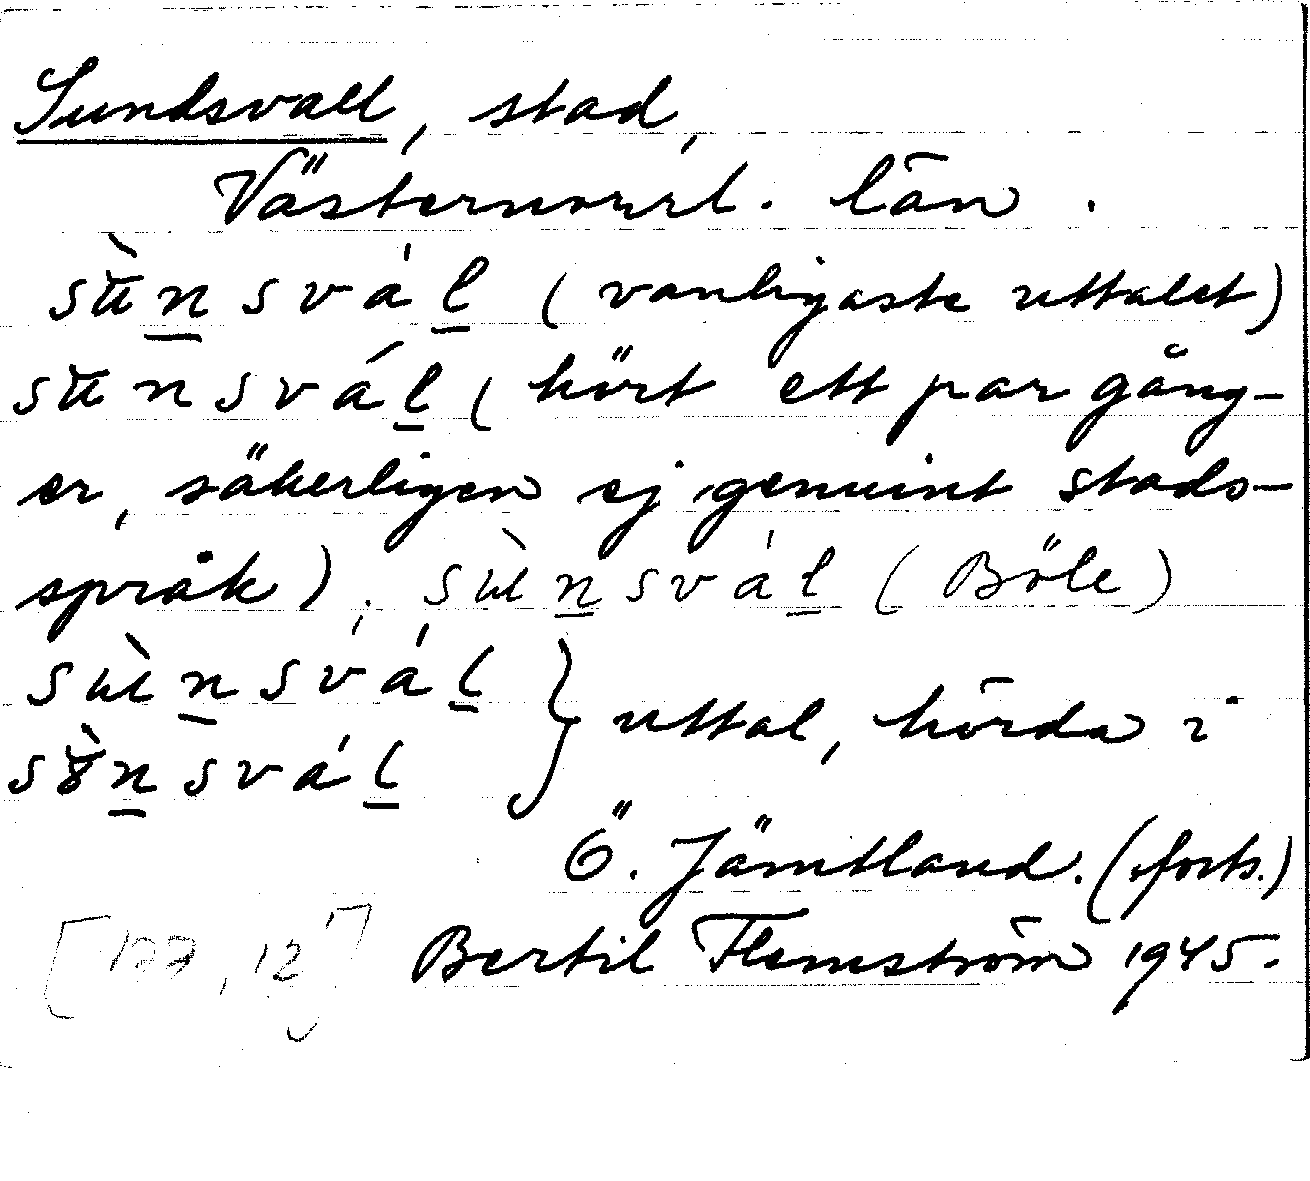 Sundsvall, stad,
Västernorrl. län.
sùnsvál (vanligaste uttalet)
sunsvál (hört ett par gång-
er, säkerligen ej genuint stads-
språk), sùnsvál (Böle)
sùnsvál } uttal, hörda i
sònsvál
Ö. Jämtland. (forts.)
[177, 12] Bertil Flemström 1945.